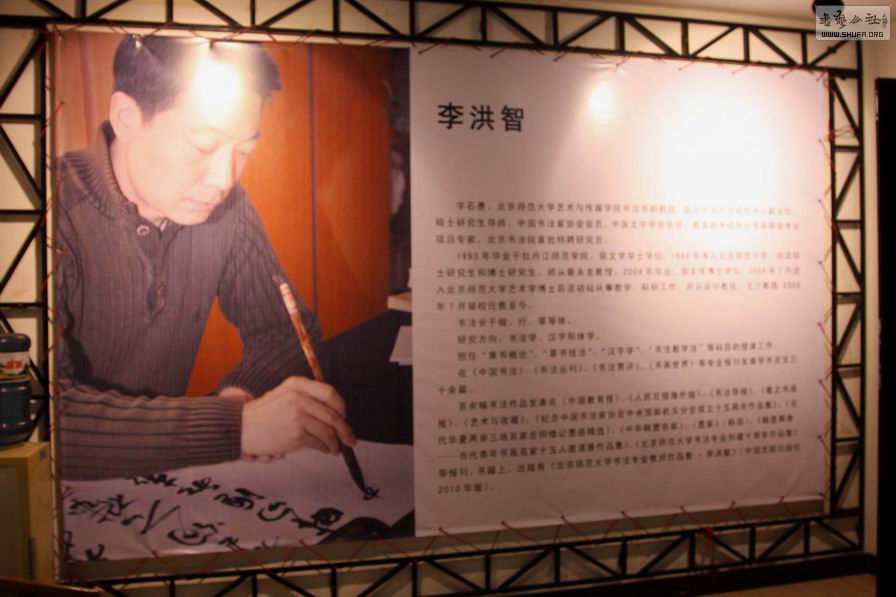 書藝公社
WWW.SHUFA.ORG
李洪智
字石愚，北京师范大学艺术与传媒学院书法系副教授，
硕士研究生导师，中国书法家协会会员，中国文字学会会员，教育部考试中心书画等级考试
项目专家，北京书法院首批特聘研究员。
1993年毕业于牡丹江师范学院，获文学学士学位；1998年考入北京师范大学，攻读硕
士研究生和博士研究生，师从秦永龙教授，2004年毕业，获文学博士学位；2004年7月进
入北京师范大学艺术学博士后流动站从事教学、科研工作，师从启功教授、王宁教授 2006
年7月留校任教至今。
书法长于楷、行、草等体。
研究方向：书法学、汉字形体学。
担任“草书概论”、“草书技法”、“汉字学”、“书法教学法”等科目的授课工作。
在《中国书法》、《书法丛刊》、《书法赏评》、《书画世界》等专业报刊发表学术论文三
十余篇。
百余幅书法作品发表在《中国教育报》、《人民日报海外版》、《书法导报》、《羲之书画
报》、《艺术与收藏》、《纪念中国书法家协会中央国家机关分会成立十五周年作品集》、《当
代华夏两岸三地百家岳阳楼记墨迹精选》、《中华翰墨名家》、《墨家》（韩国）、《翰墨新象
——当代青年书画名家十五人邀请展作品集》、《北京师范大学书法专业创建十周年作品集》
等报刊、书籍上。出版有《北京师范大学书法专业教师作品集·李洪智》（中国文联出版社
2010年版）。